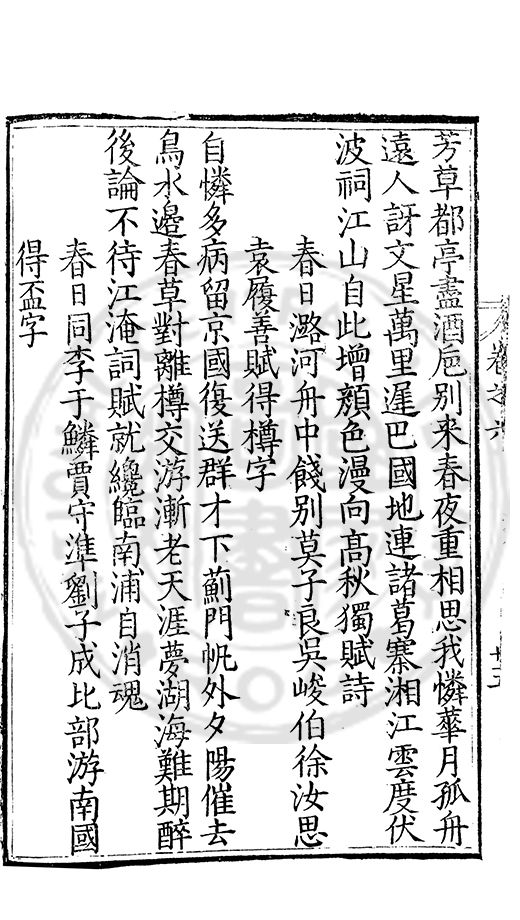 卷之六
廿五
芳草都亭盡酒巵别来春夜重相思我憐華月孤舟
遠人訝文星萬里遲巴國地連諸葛寨湘江雲度伏
波祠江山自此增顔色漫向髙秋獨賦詩
春日潞河舟中餞别莫子良吳峻伯徐汝思
袁履善賦得樽字
自憐多病留京國復送群才下薊門帆外夕陽催去
鳥水邊春草對離樽交游漸老天涯夢湖海難期醉
後論不待江淹詞賦就纔臨南浦自消魂
春日同李于鱗賈守準劉子成比部游南國
得盃字